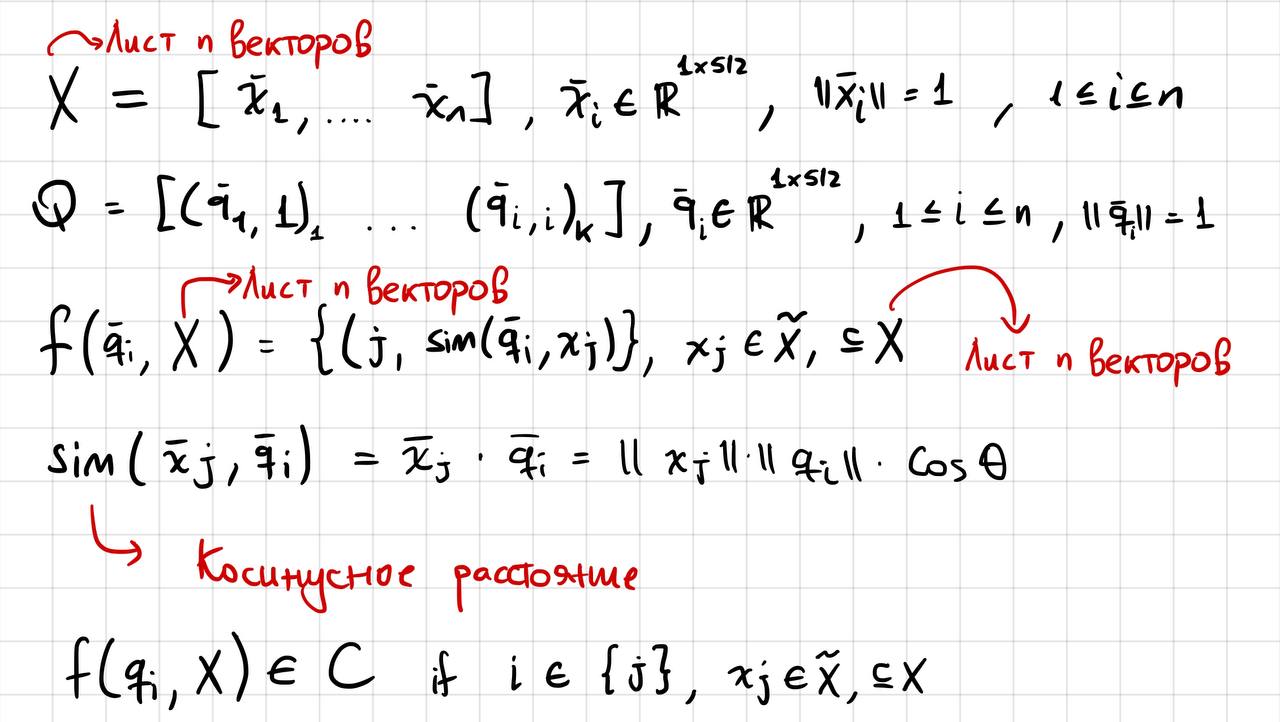 Лист n векторов
X = [x̄₁, .... x̄ₙ], x̄ᵢ ∈ ℝ¹ˣ⁵¹², ||x̄ᵢ|| = 1, 1 ≤ i ≤ n
Q = [(q̄₁, 1)₁ ... (q̄ᵢ, i)ₖ], q̄ᵢ ∈ ℝ¹ˣ⁵¹², 1 ≤ i ≤ n, ||q̄ᵢ|| = 1
Лист n векторов
f(q̄ᵢ, X) = {(j, sim(q̄ᵢ, xⱼ)}, xⱼ ∈ X̃, ⊆ X
Лист n векторов
sim(x̄ⱼ, q̄ᵢ) = x̄ⱼ · q̄ᵢ = ||xⱼ||·||qᵢ|| · cos θ
Косинусное расстояние
f(qᵢ, X) ∈ C if i ∈ {j}, xⱼ ∈ X̃, ⊆ X